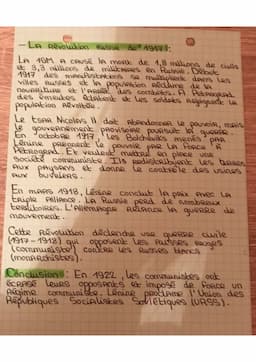 - La Révolution Russe de 1917 :
La 1GM a causé la mort de 1,8 millions de civils
et 3,3 millions de militaires en Russie. Début
1917 des manifestations se multiplient dans les
villes russes et la population réclame de la
nourriture et l'arrêt des combats. A Petrograd
des émeutes éclatent et les soldats rejoignent la
population révoltée.
Le tsar Nicolas II doit abandonner le pouvoir, mais
le gouvernement provisoire poursuit la guerre.
En octobre 1917, les Bolcheviks menés par
Lénine prennent le pouvoir par la force à
Petrograd. Et veulent mettre en place une
société communiste. Ils redistribuent les terres
aux paysans et donne le contrôle des usines
aux ouvriers.
En mars 1918, Lénine conclut la paix avec la
Triple Alliance. La Russie perd de nombreux
territoires. L'Allemagne relance la guerre de
mouvement.
Cette Révolution déclenche une guerre civile
(1917-1921) qui opposent les Russes rouges
(communiste) contre les Russes blancs
(monarchistes).
Conclusion : En 1922, les communistes ont
écrasé leurs opposants et imposé de force un
régime communiste. Lénine proclame l'Union des
Républiques Socialistes Soviétiques (URSS).